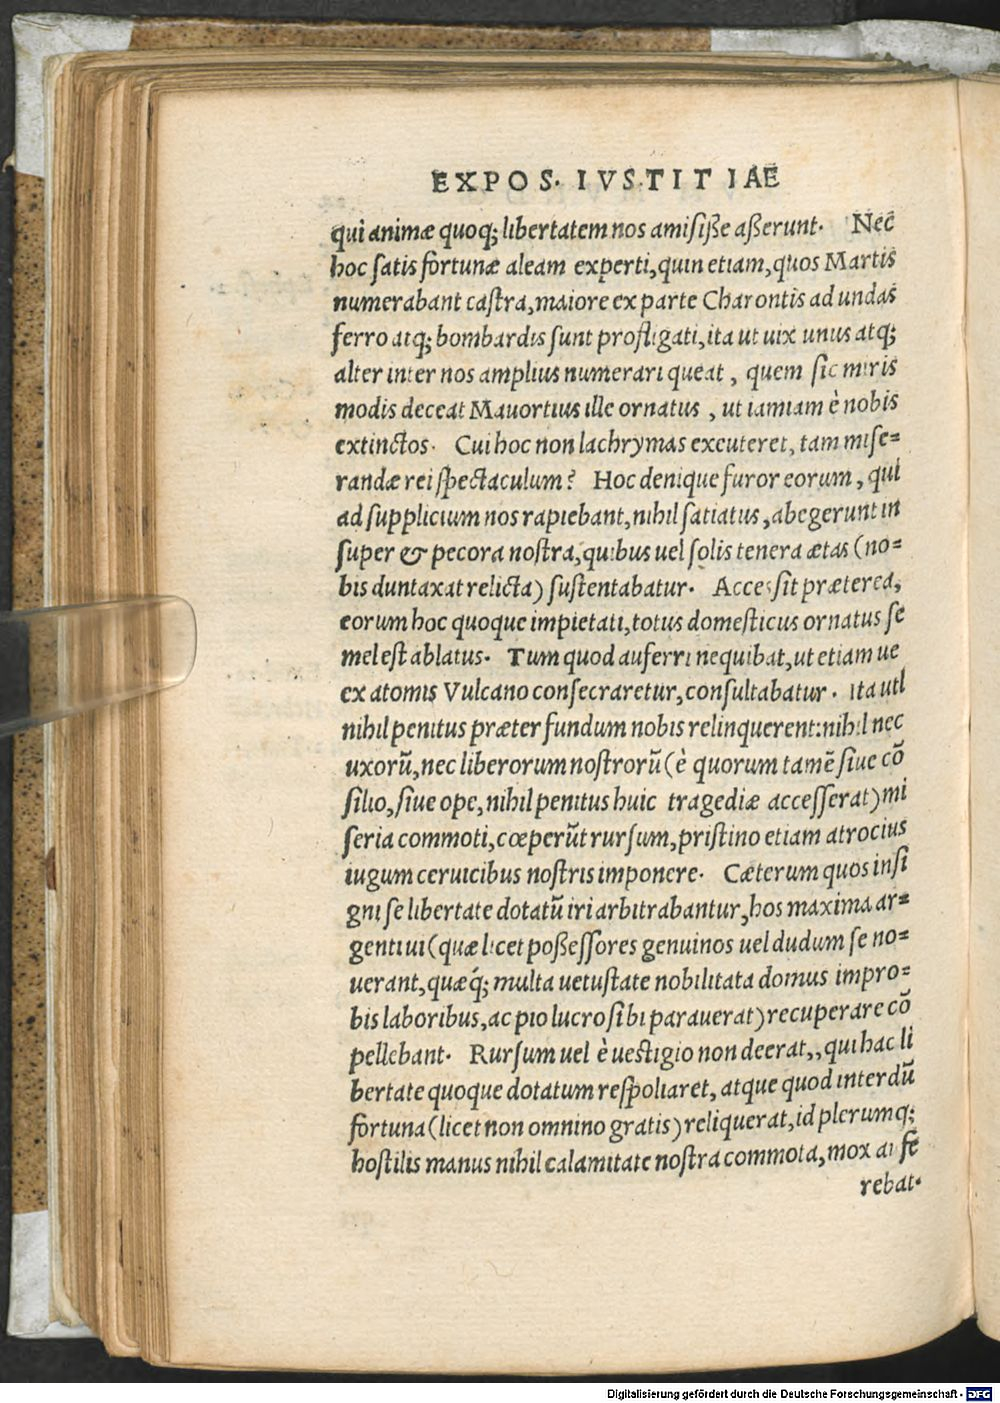 EXPOS. IVSTITIAE
qui animæ quoq; libertatem nos amisiße aßerunt. Nec
hoc satis fortunæ aleam experti, quin etiam, quos Martis
numerabant castra, maiore ex parte Charontis ad undas
ferro atq; bombardis sunt profligati, ita ut uix unus atq;
alter inter nos amplius numerari queat, quem sic miris
modis deceat Mauortius ille ornatus, ut iamiam è nobis
extinctos. Cui hoc non lachrymas excuteret, tam mise=
randæ rei spectaculum? Hoc denique furor eorum, qui
ad supplicium nos rapiebant, nihil satiatus, abegerunt in
super & pecora nostra, quibus uel solis tenera ætas (no=
bis duntaxat relicta) sustentabatur. Accessit præterea,
eorum hoc quoque impietati, totus domesticus ornatus se
mel est ablatus. Tum quod auferri nequibat, ut etiam ue
ex atomis Vulcano consecraretur, consultabatur. ita uti
nihil penitus præter fundum nobis relinquerent: nihil nec
uxorũ, nec liberorum nostrorũ (è quorum tamẽ siue cõ
silio, siue ope, nihil penitus huic tragediæ accesserat) mi
seria commoti, cœperũt rursum, pristino etiam atrocius
iugum ceruicibus nostris imponere. Cæterum quos insi
gni se libertate dotatũ iri arbitrabantur, hos maxima ar=
genti ui (quæ licet poßessores genuinos uel dudum se no=
uerant, quæq́; multa uetustate nobilitata domus impro=
bis laboribus, ac pio lucro sibi parauerat) recuperare cõ
pellebant. Rursum uel è uestigio non deerat,, qui hac li
bertate quoque dotatum respoliaret, atque quod interdũ
fortuna (licet non omnino gratis) reliquerat, id plerumq;
hostilis manus nihil calamitate nostra commota, mox au fe
rebat.
Digitalisierung gefördert durch die Deutsche Forschungsgemeinschaft - DFG